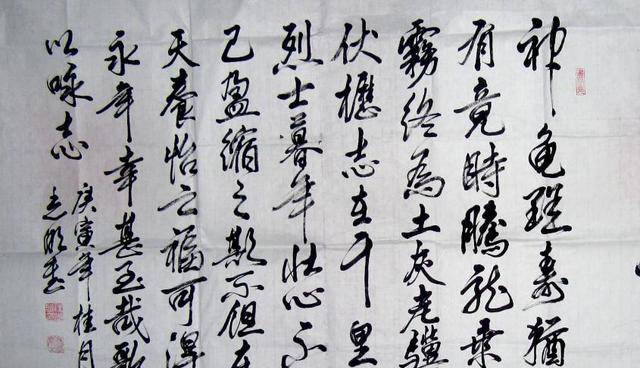 神龟雖壽猶
有竟時騰龙乘
霧終為土灰老驥
伏櫪志在千里
烈士暮年壮心不
已盈缩之期不但在
天養怡之福可得
永年幸甚至哉歌
以咏志
庚寅年桂月